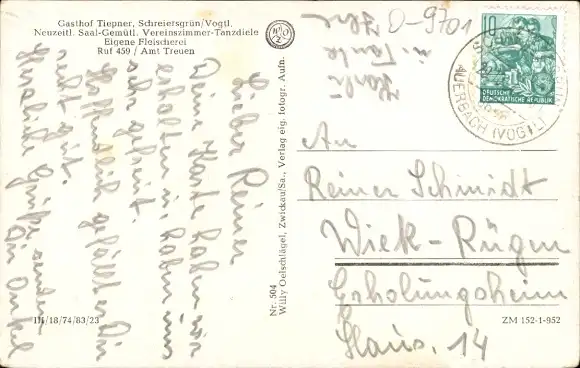 Gasthof Tiepner, Schreiersgrün/Vogtl.
Neuzeitl. Saal-Gemütl. Vereinszimmer-Tanzdiele
Eigene Fleischerei
Ruf 459 / Amt Treuen
Lieber Reiner
Deine Karte haben wir
erhalten u. haben uns
sehr gefreut.
Hoffentlich gefällt es Dir
recht gut.
Herzliche Grüße senden
Dir Onkel
u. Tante
III/18/74/83/23
Nr. 504
Willy Oelschlägel, Zwickau/Sa., Verlag eig. fotogr. Aufn.
D-9701
10
DEUTSCHE
DEMOKRATISCHE REPUBLIK
AUERBACH (VOGTL)
An
Reiner Schmidt
Wiek-Rügen
Erholungsheim
Haus. 14
ZM 152-1-952